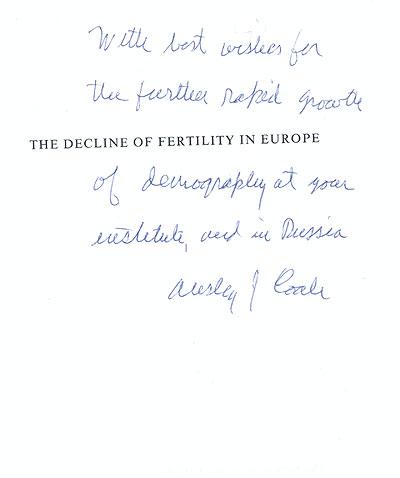 With best wishes for
the further rapid growth
THE DECLINE OF FERTILITY IN EUROPE
of demography at your
institute, and in Russia
Ansley J Coale